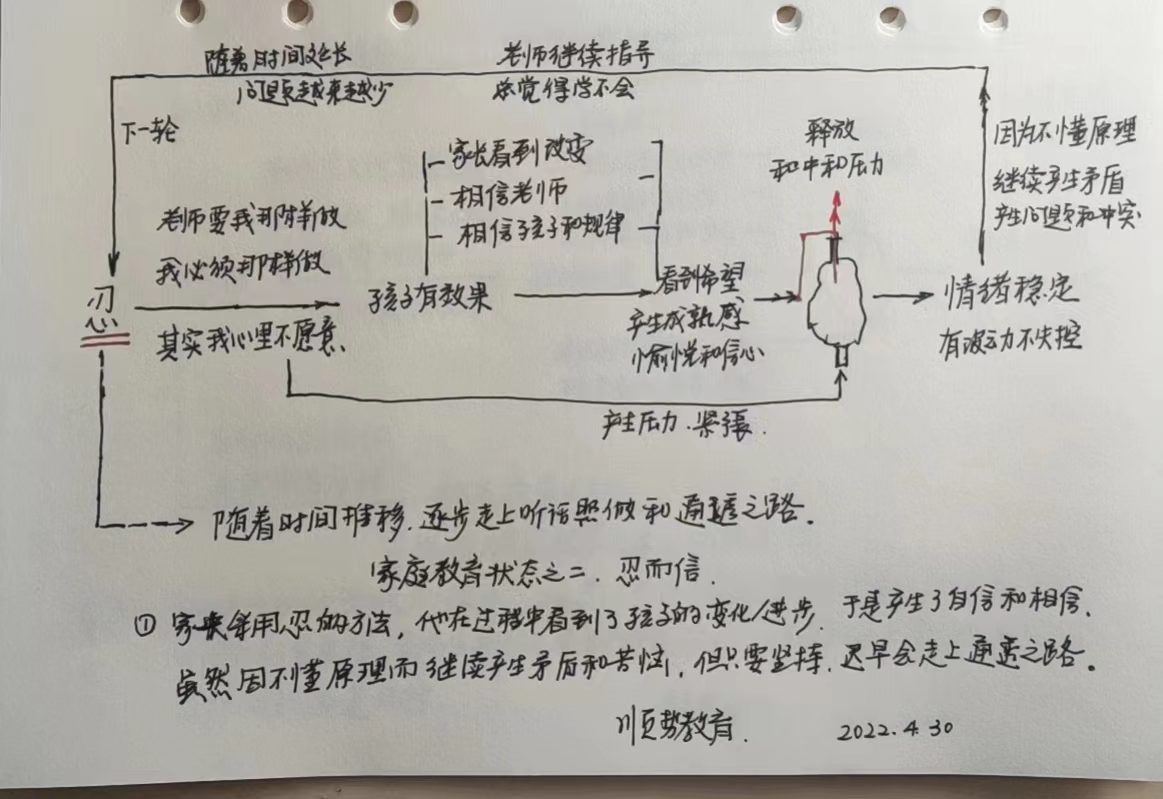 随着时间延长
问题越来越少
老师继续指导
总觉得学不会
下一轮
释放
和中和压力
因为不懂原理
继续产生矛盾
产生问题和冲突
家长看到改变
相信老师
相信孩子和规律
老师要我那样做
我必须那样做
忍
其实我心里不愿意
孩子有效果
看到希望
产生成就感
愉悦和信心
情绪稳定
有波动不失控
产生压力、紧张.
随着时间推移.逐步走上听话照做和通透之路.
家庭教育状态之二.忍而信.
① 家长采用忍的方法,他在过程中看到了孩子的变化/进步.于是产生了自信和相信.
虽然因不懂原理而继续产生矛盾和苦恼,但只要坚持.迟早会走上通透之路。
顺势教育. 2022.4.30